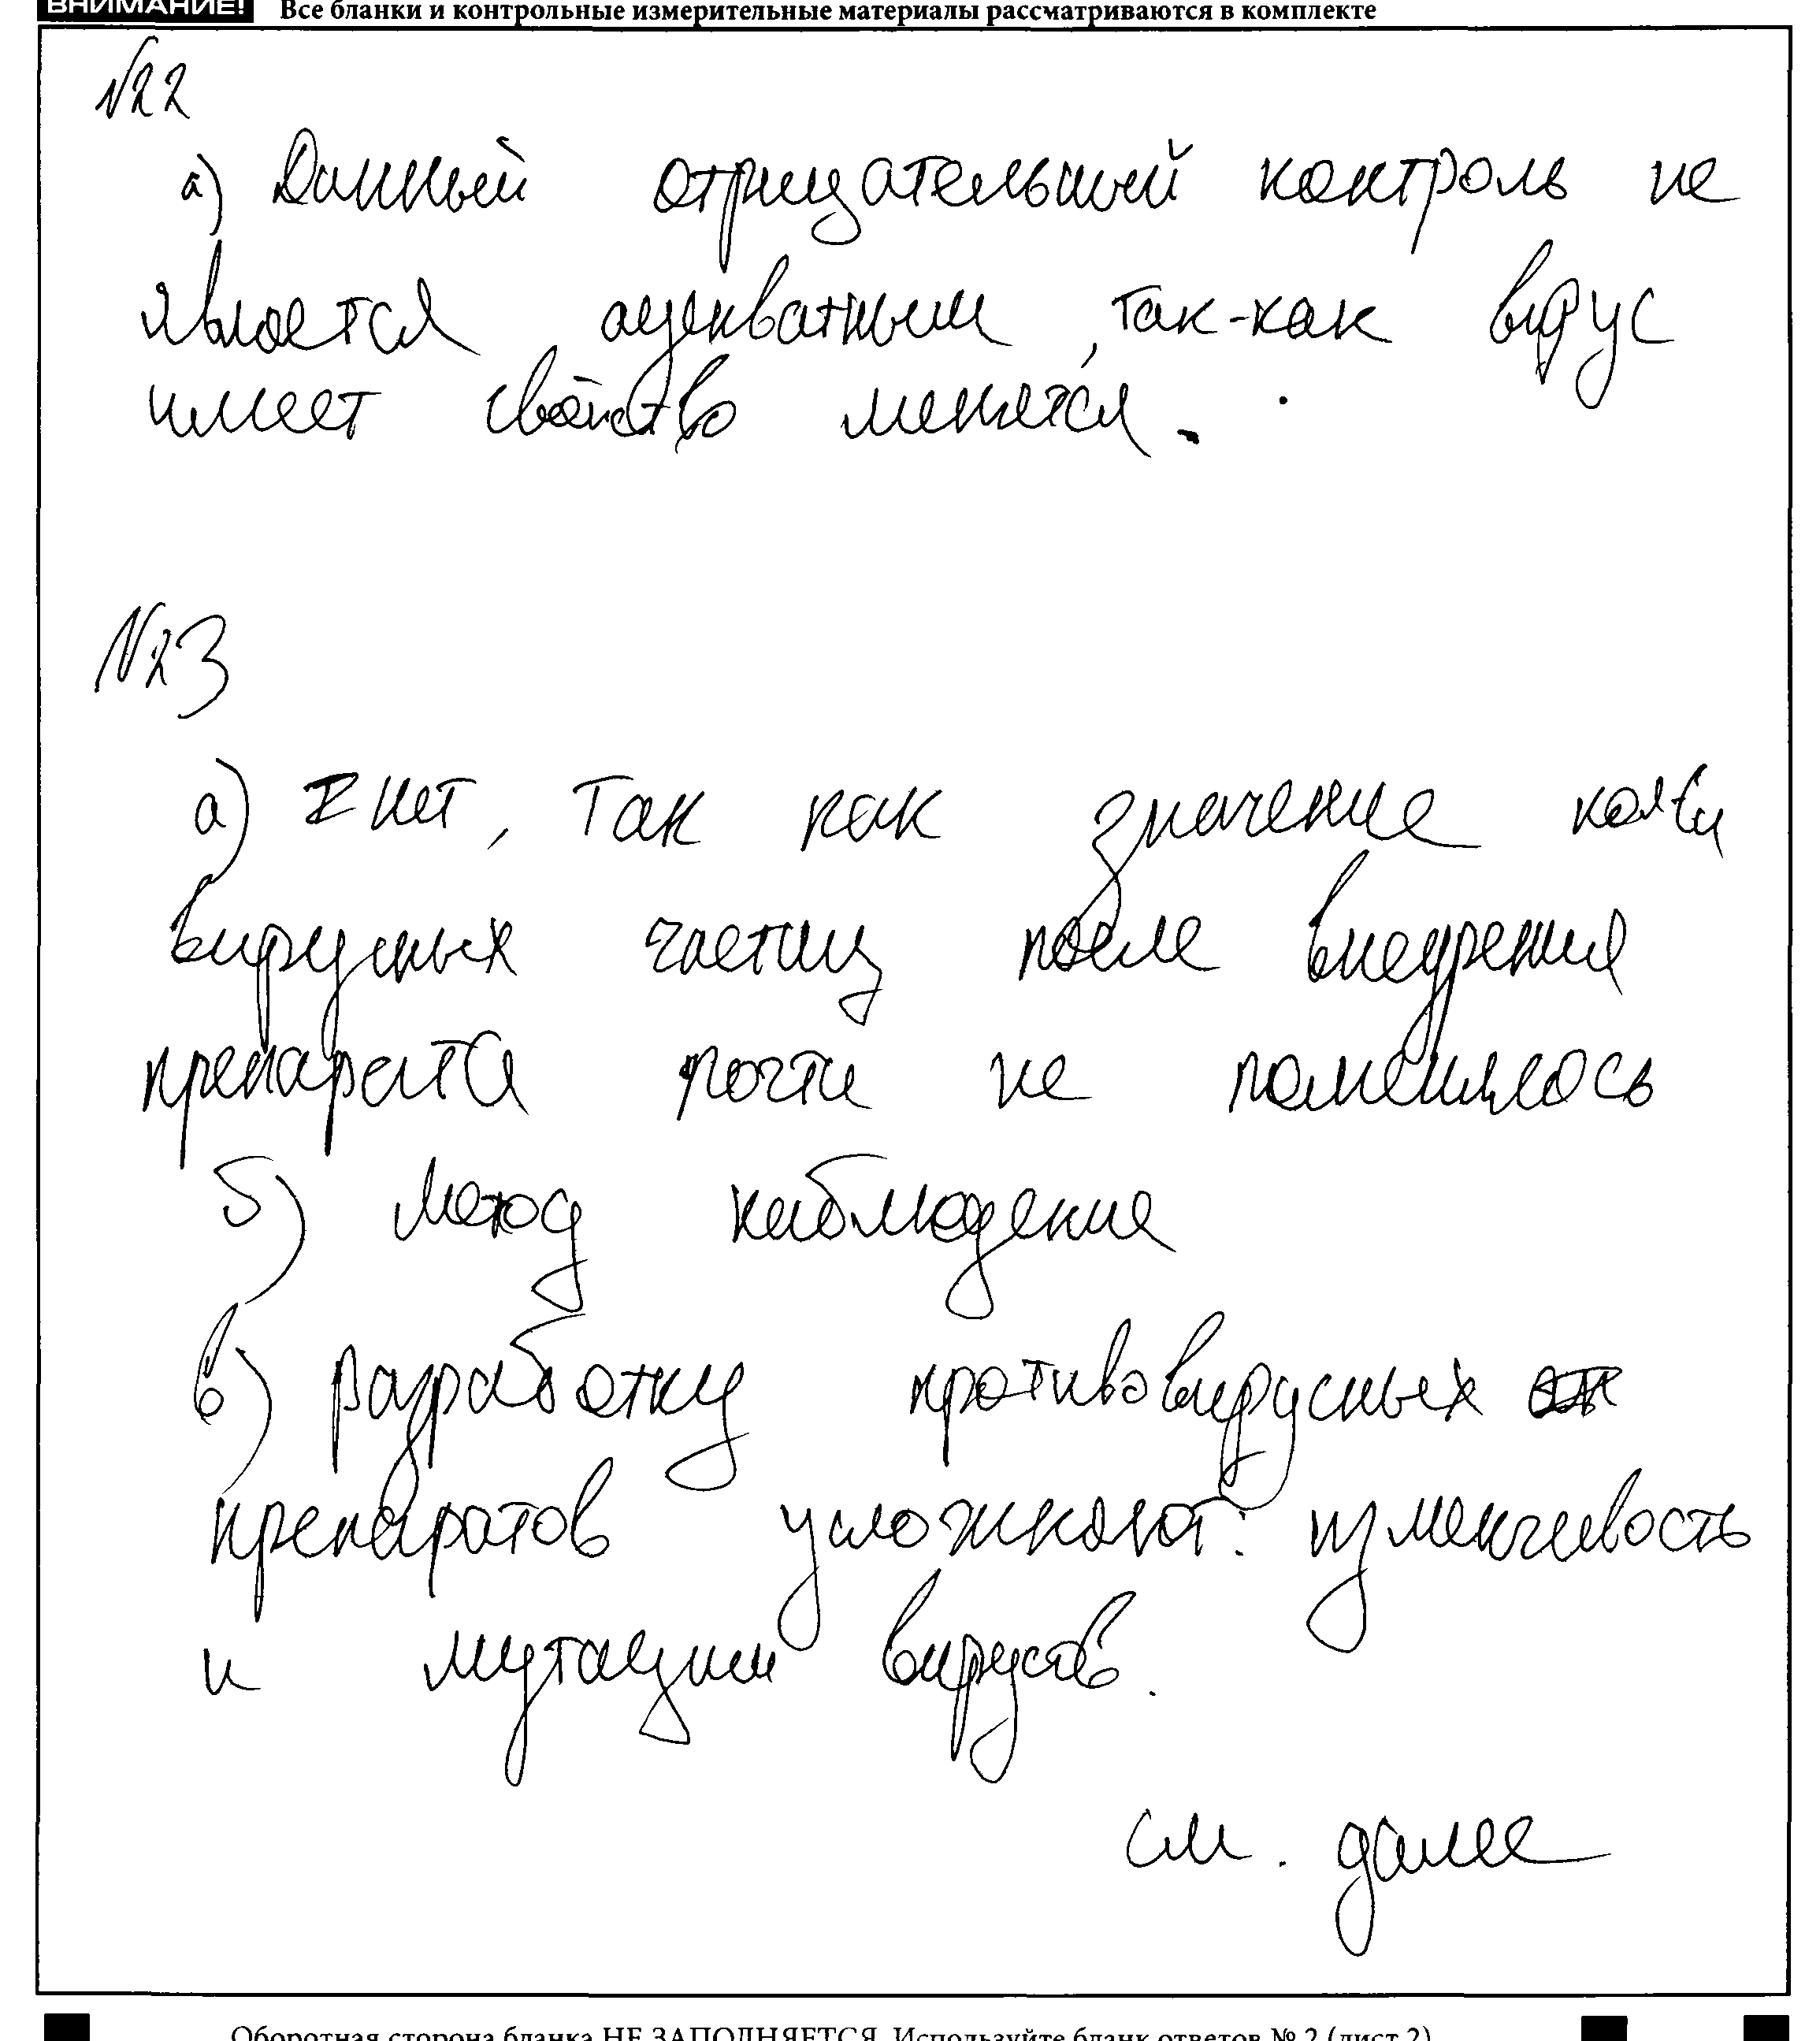 ВНИМАНИЕ! Все бланки и контрольные измерительные материалы рассматриваются в комплекте
№22
а) Данный отрицательный контроль не
является адекватным, так-как вирус
имеет свойство менятся.
№23
а) нет, так как значение кол-ва
вирусных частиц после внедрения
препарата почти не поменялось
б) метод наблюдения
в) разработку противовирусных
препаратов усложняют: изменчивость
и мутации вирусов.
см. далее
Оборотная сторона бланка НЕ ЗАПОЛНЯЕТСЯ. Используйте бланк ответов № 2 (лист 2)